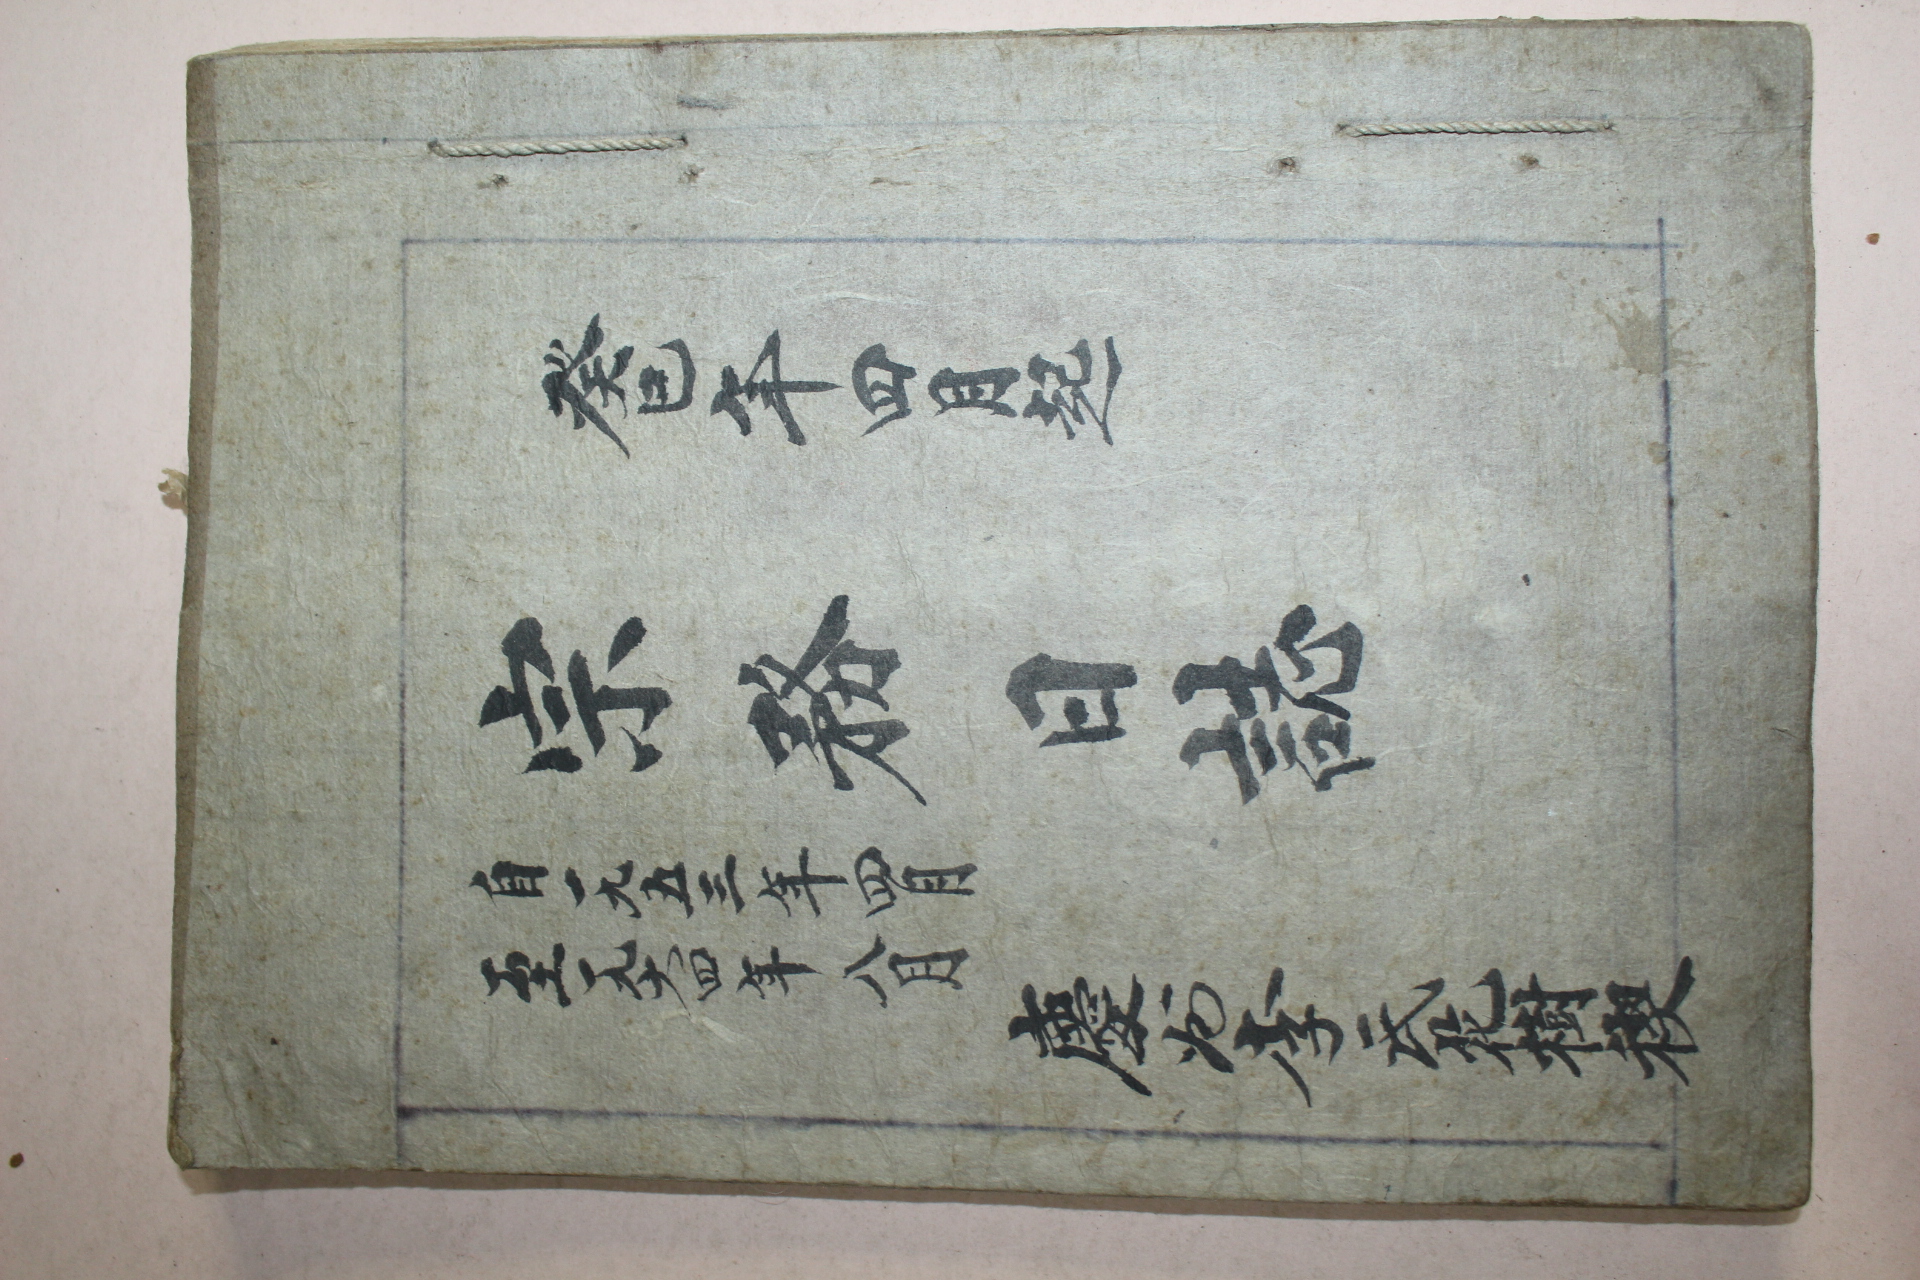 癸巳年四月起
宗務日誌
自一九五三年四月
至一九六四年八月
慶州李氏花樹稧